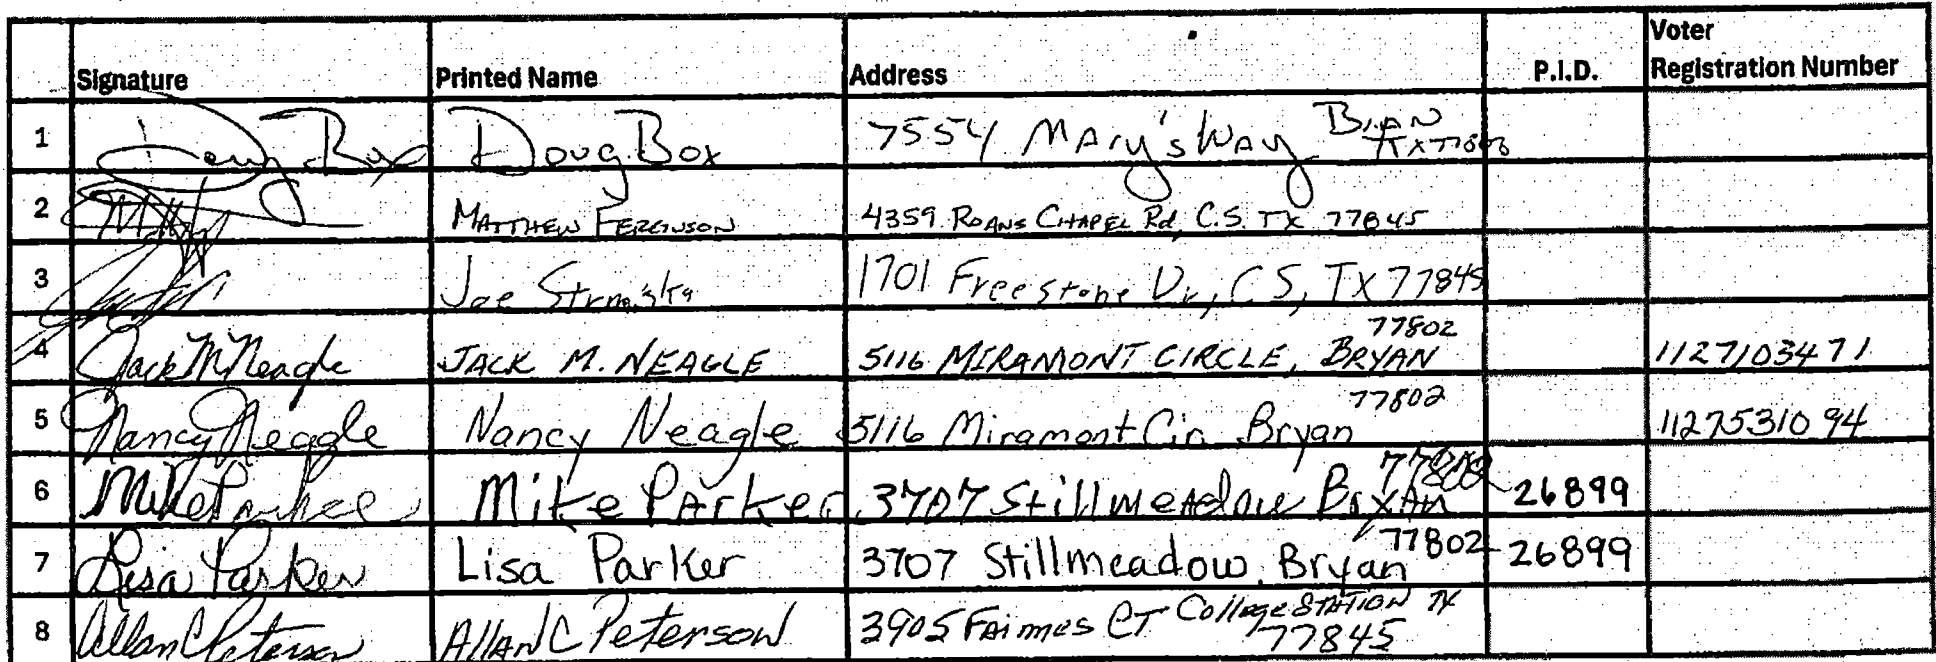 Signature Printed Name Address P.I.D. Voter Registration Number
1 Doug Box Doug Box 7554 Mary's Way Bryan TX 77808
2 MATTHEW FERGUSON 4359 ROANS CHAPEL Rd, C.S. TX 77845
3 Joe 1701 Freestone Dr, CS, TX 77845
4 Jack M Neagle JACK M. NEAGLE 5116 MIRAMONT CIRCLE, BRYAN 77802 1127103471
5 Nancy Neagle Nancy Neagle 5116 Miramont Cir. Bryan 77802 1127531094
6 Mike Parker Mike Parker 3707 Stillmeadow Bryan 77802 26899
7 Lisa Parker Lisa Parker 3707 Stillmeadow, Bryan 77802 26899
8 Allan C Peterson Allan C Peterson 3905 CT College STATION TX 77845